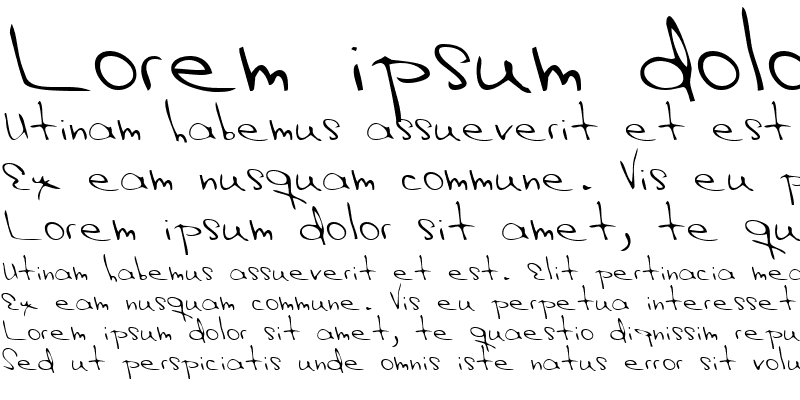 Lorem ipsum dolo
Utinam habemus assueverit et est
Ex eam nusquam commune. Vis eu p
Lorem ipsum dolor sit amet, te qu
Utinam habemus assueverit et est. Elit pertinacia med
Ex eam nusquam commune. Vis eu perpetua interesset
Lorem ipsum dolor sit amet, te quaestio dignissim repu
Sed ut perspiciatis unde omnis iste natus error sit volu